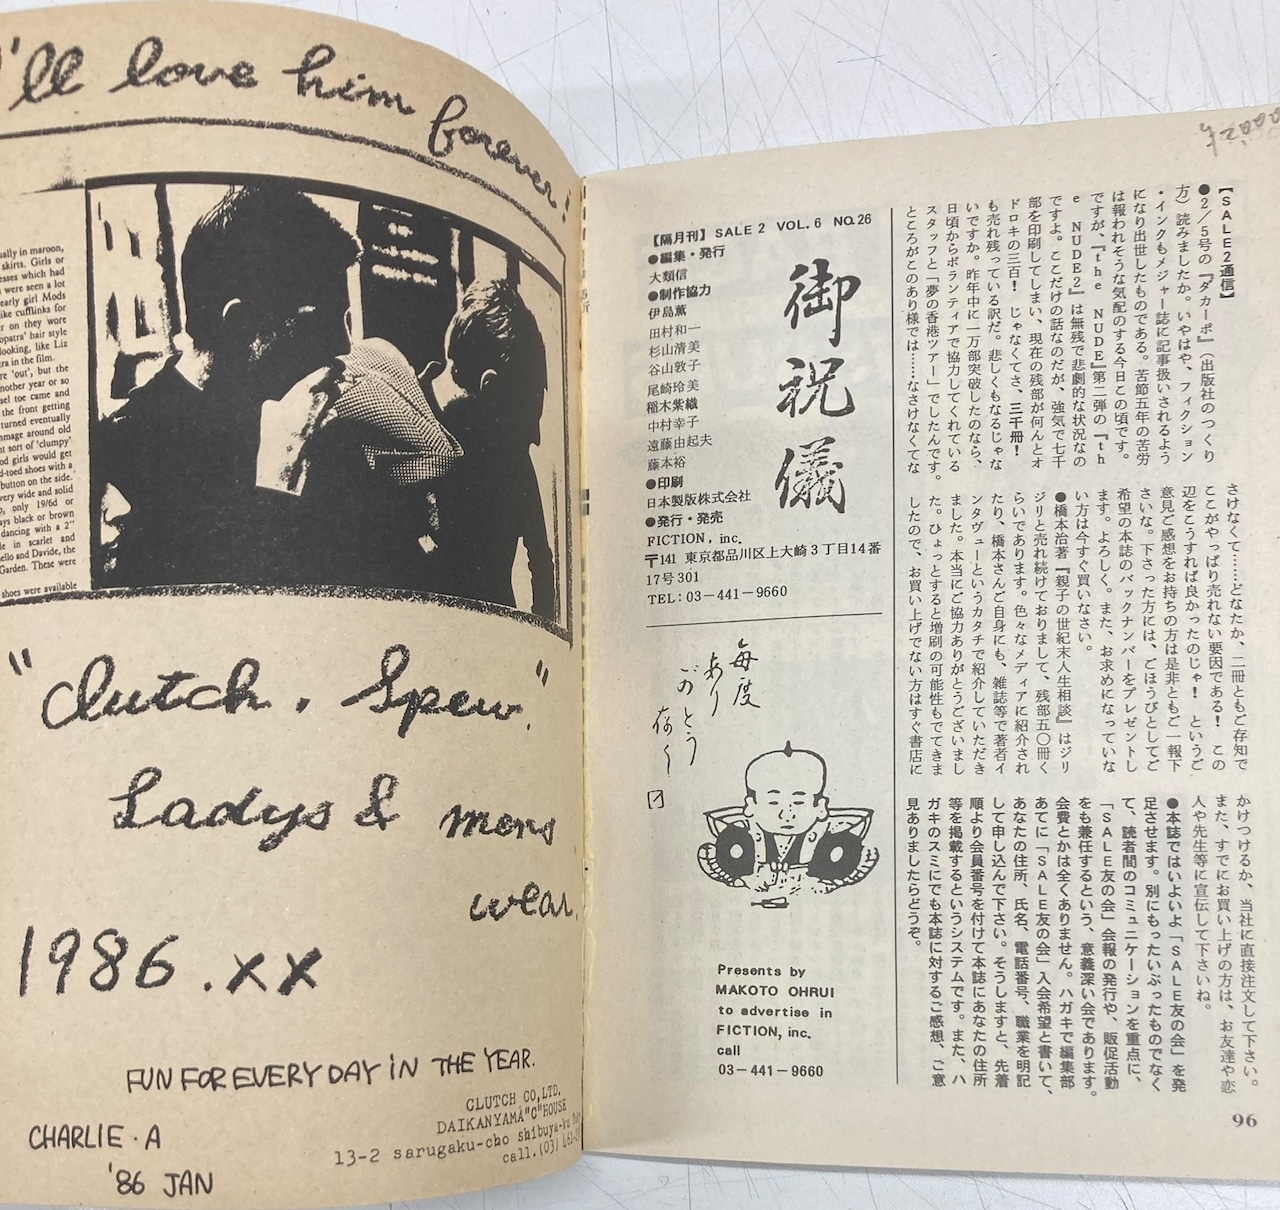 'll love him forever!
ually in maroon,
skirts. Girls or
esses which had
were seen a lot
early girl Mods
ike cufflinks for
er on they wore
eopatra' hair style
looking, like Liz
ra in the film.
re 'out', but the
nother year or so
sel toe came and
the front getting
turned eventually
mmage around old
nt sort of 'clumpy'
od girls would get
d-toed shoes with a
button on the side.
very wide and solid
only 19/6d or
ays black or brown
dancing with a 2"
le in scarlet and
nello and Davide, the
Garden. These were
shoes were available
"Clutch, Spew,"
Ladys & mens
wear,
1986.xx
FUN FOR EVERY DAY iN THE YEAR.
CLUTCH CO,LTD.
DAIKANYAMA"C"HOUSE
13-2 sarugaku-cho shibuya-ku
call.(03)
CHARLIE・A
'86 JAN
【隔月刊】SALE 2 VOL. 6 NO. 26
●編集・発行
大類信
●制作協力
伊島薫
田村和一
杉山清美
谷山敦子
尾崎玲美
稲木紫織
中村幸子
遠藤由起夫
藤本裕
●印刷
日本製版株式会社
●発行・発売
FICTION, inc.
〒141 東京都品川区上大崎3丁目14番
17号301
TEL: 03-441-9660
御祝儀
毎度
あり
がとう
Presents by
MAKOTO OHRUI
to advertise in
FICTION, inc.
call
03-441-9660
【SALE2通信】
●2/5号の『ダカーポ』(出版社のつくり
方)読みましたか。いやはや、フィクション
・インクもメジャー誌に記事扱いされるよう
になり出世したものである。苦節五年の苦労
は報われそうな気配のする今日この頃です。
ですが、『the NUDE』第二弾の『th
e NUDE2』は無残で悲劇的な状況なの
ですよ。ここだけの話なのだが、強気で七千
部を印刷してしまい、現在の残部が何んとオ
ドロキの三百! じゃなくてさ、三千冊!
も売れ残っている訳だ。悲しくもなるじゃな
いですか。昨年中に一万部突破したのなら、
日頃からボランティアで協力してくれている
スタッフと「夢の香港ツアー」でしたんです。
ところがこのあり様では……なさけなくてな
さけなくて……どなたか、二冊ともご存知で
ここがやっぱり売れない要因である! この
辺をこうすれば良かったのじゃ! というご
意見ご感想をお持ちの方は是非ともご一報下
さいな。下さった方には、ごほうびとしてご
希望の本誌のバックナンバーをプレゼントし
ます。よろしく。また、お求めになっていな
い方は今すぐ買いなさい。
●橋本治著『親子の世紀末人生相談』はジリ
ジリと売れ続けておりまして、残部五〇冊く
らいであります。色々なメディアに紹介され
たり、橋本さんご自身にも、雑誌等で著者イ
ンタヴューというカタチで紹介していただき
ました。本当にご協力ありがとうございまし
た。ひょっとすると増刷の可能性もでてきま
したので、お買い上げでない方はすぐ書店に
かけつけるか、当社に直接注文して下さい。
また、すでにお買い上げの方は、お友達や恋
人や先生等に宣伝して下さいね。
●本誌ではいよいよ「SALE友の会」を発
足させます。別にもったいぶったものでなく
て、読者間のコミュニケーションを重点に、
「SALE友の会」会報の発行や、販促活動
をも兼任するという、意義深い会であります。
会費とかは全くありません。ハガキで編集部
あてに「SALE友の会」入会希望と書いて、
あなたの住所、氏名、電話番号、職業を明記
して申し込んで下さい。そうしますと、先着
順より会員番号を付けて本誌にあなたの住所
等を掲載するというシステムです。また、ハ
ガキのスミにでも本誌に対するご感想、ご意
見ありましたらどうぞ。
96